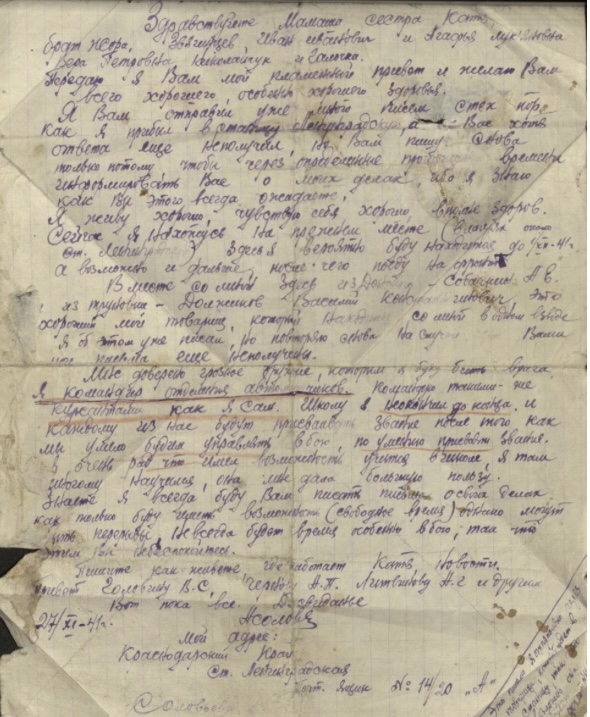 Здравствуйте Мамаша сестра Катя,
брат Жора, Звягинцев Иван Иванович и Агафья Лукьяновна
Вера Петровна, Николайчук и Галочка.
Передаю я Вам мой пламенный привет и желаю Вам
всего хорошего, особенно хорошего здоровья.
Я Вам отправил уже много писем с тех пор
как я прибыл в станицу Ленинградскую, а от Вас хоть
ответа еще неполучил, но Вам пишу снова
только потому, чтобы через определенные времени
информировать Вас о моих делах, ибо я знаю
как Вы этого всегда ожидаете.
Я живу хорошо, чувствую себя хорошо, вполне здоров.
Сейчас я нахожусь на прежнем месте (
ст. Ленинградской) Здесь я вероятно буду находится до
а возможно и дальше, после чего поеду на фронт.
Вместе со мной здесь из А. Е.
из Должиков Василий это
хороший мой товарищ, который со мной в одном взводе
Я об этом уже писал, но повторяю снова Вами
мои письма еще неполучены.
Мне доверено грозное оружие, которым я буду бить врага
Я командир отделения автоматчиков. Командую такими же
курсантами как я сам. Школу я неокончил до конца, и
каждому из нас будут присваивать звание после того как
мы умело будем управлять в бою, по умению присвоят звание.
Я очень рад что имел возможность учится в школе, я там
многому научился, она мне дала большую пользу.
Знаете я всегда буду Вам писать письма о своих делах.
как только буду иметь возможность (свободное время) однако могут
быть перерывы. Не всегда будет время особенно в бою; так что
этим Вы небеспокойтесь.
Пишите как живете, где работает Катя, Новости.
Привет Головину В.С., А.П. Литвинову А.Е и другим
Вот пока все. Досвиданье
27/XI-41г.
Мой адрес:
Краснодарский Край
ст. Ленинградская
Почт. ящик № 14/20 "А"